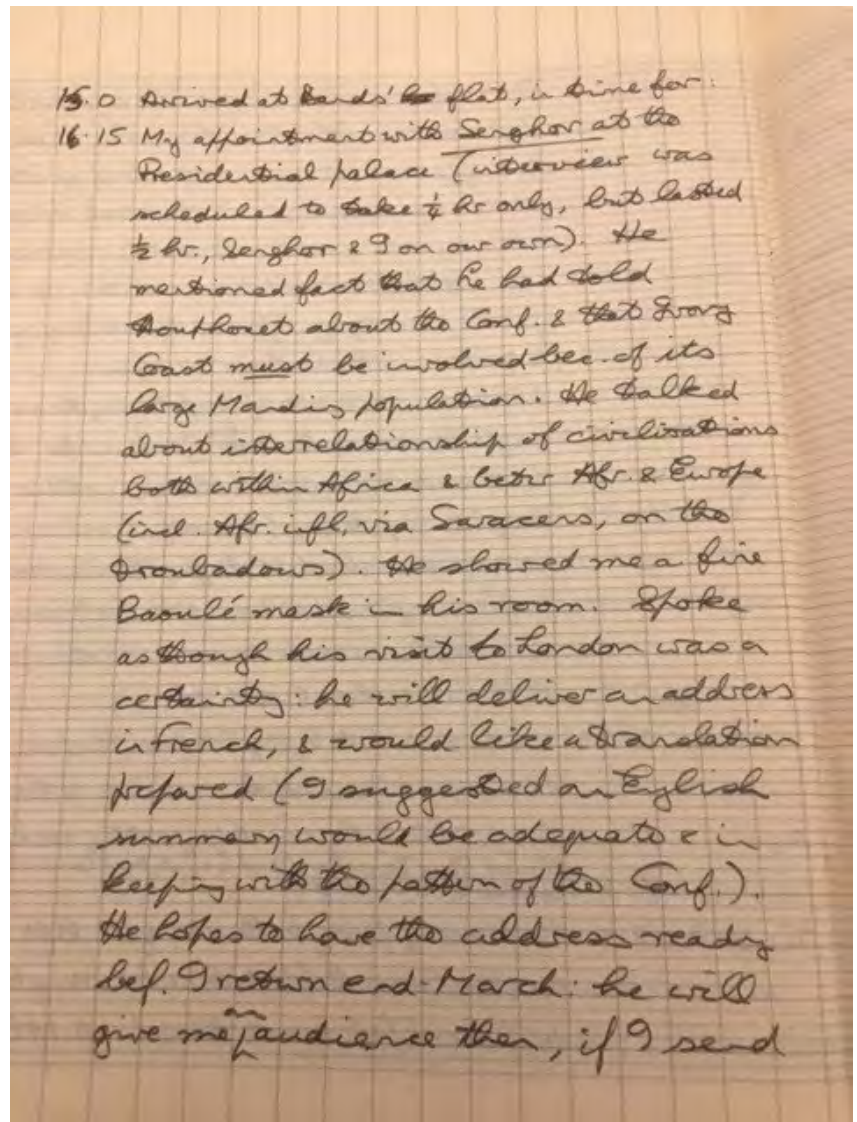 15.0 Arrived at Bards' flat, in time for:
16.15 My appointment with Senghor at the
Presidential palace (interview was
scheduled to take ¼ hr only, but lasted
½ hr., Senghor & I on our own). He
mentioned fact that he had told
Houphouet about the Conf. & that Ivory
Coast must be involved bec. of its
large Manding population. He talked
about interrelationship of civilisations
both within Africa & betw Afr. & Europe
(incl. Afr. infl, via Saracens, on the
troubadours). He showed me a fine
Baoulé mask in his room. Spoke
as though his visit to London was a
certainty: he will deliver an address
in French, & would like a translation
prepared (I suggested an English
summary would be adequate & in
keeping with the pattern of the Conf.).
He hopes to have the address ready
bef. I return end-March: he will
give me an audience then, if I send